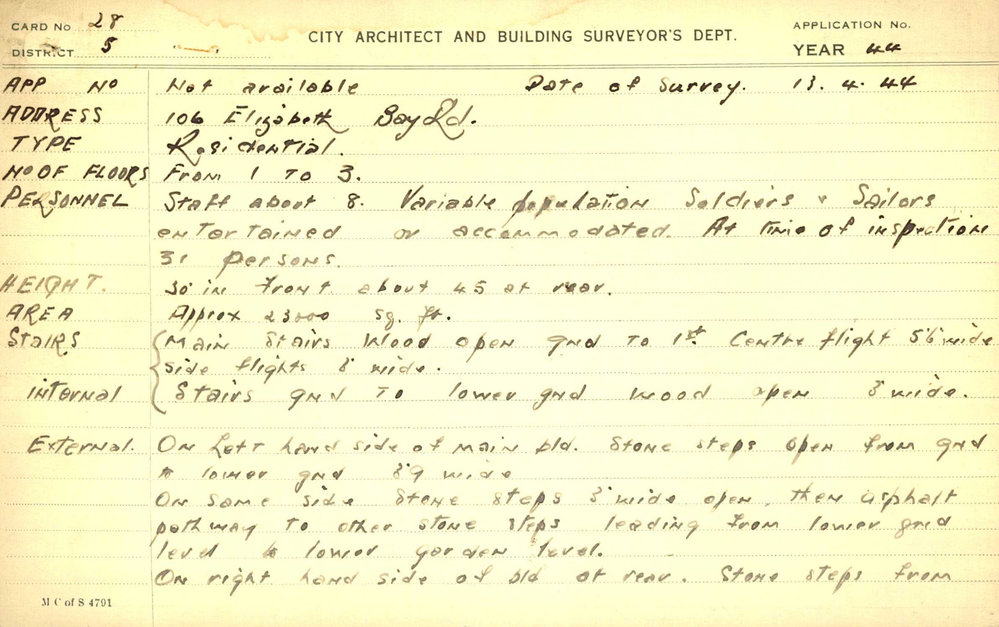 CARD No 28 CITY ARCHITECT AND BUILDING SURVEYOR'S DEPT. APPLICATION No.
DISTRICT 5 YEAR 44
APP No Not available Date of Survey. 13.4.44
ADDRESS 106 Elizabeth Bay Rd.
TYPE Residential.
No OF FLOORS From 1 To 3.
PERSONNEL Staff about 8. Variable population Soldiers & Sailors
entertained or accommodated. At time of inspection
31 persons.
HEIGHT. 30' in front about 45 at rear.
AREA Approx 23000 sq. ft.
Stairs Main Stairs Wood open gnd To 1st. Centre flight 5'6 wide
side flights 3' wide.
internal Stairs gnd To lower gnd wood open 3' wide.
External. On Left hand side of main bld. Stone steps open from gnd
to lower gnd 3'9 wide
On same side Stone steps 3' wide open, then asphalt
pathway to other stone steps leading from lower gnd
level to lower garden level.
On right hand side of bld at rear. Stone steps from
M C of S 4791